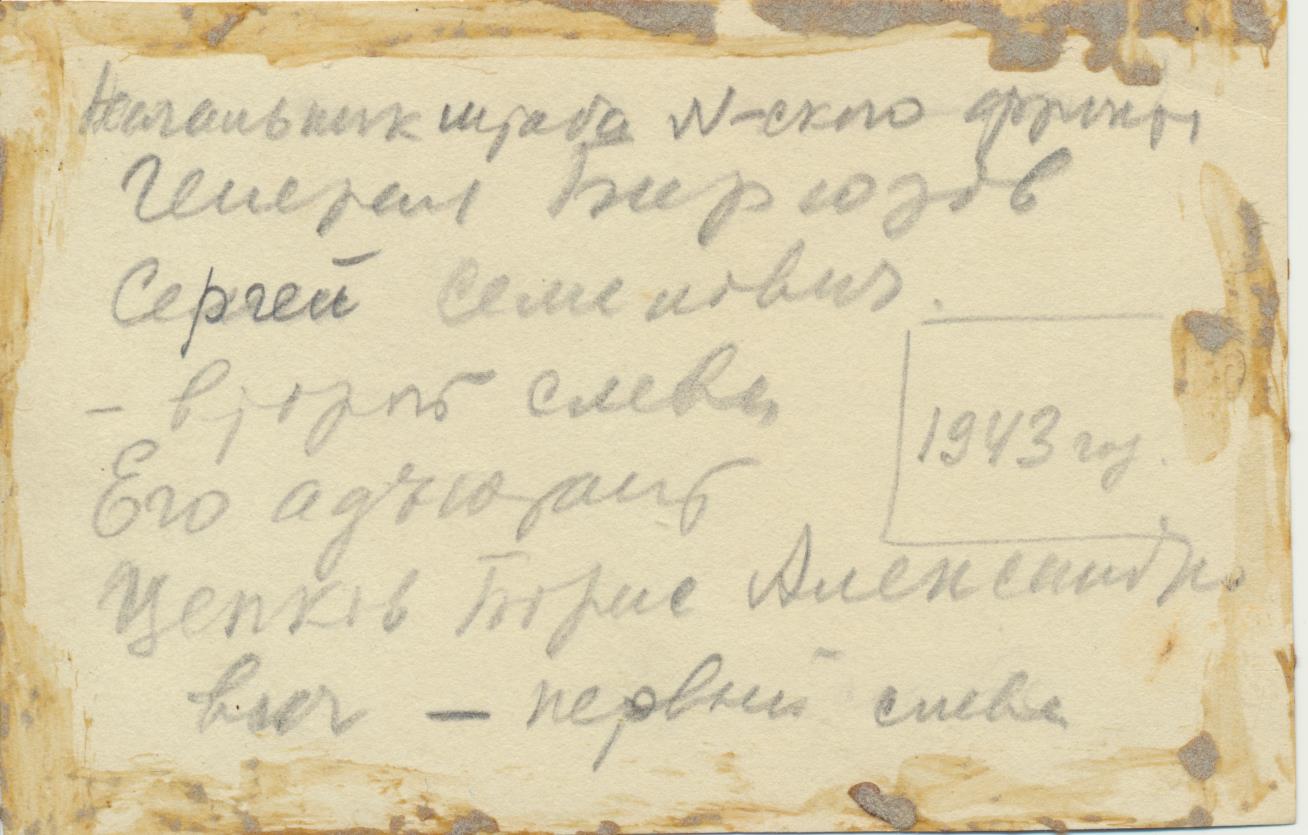 Начальник штаба N-ского фронта
Генерал Бирюзов
Сергей Семенович.
– второй слева
1943 год.
Его адъютант
Цепков Борис Александро
вич – первый слева